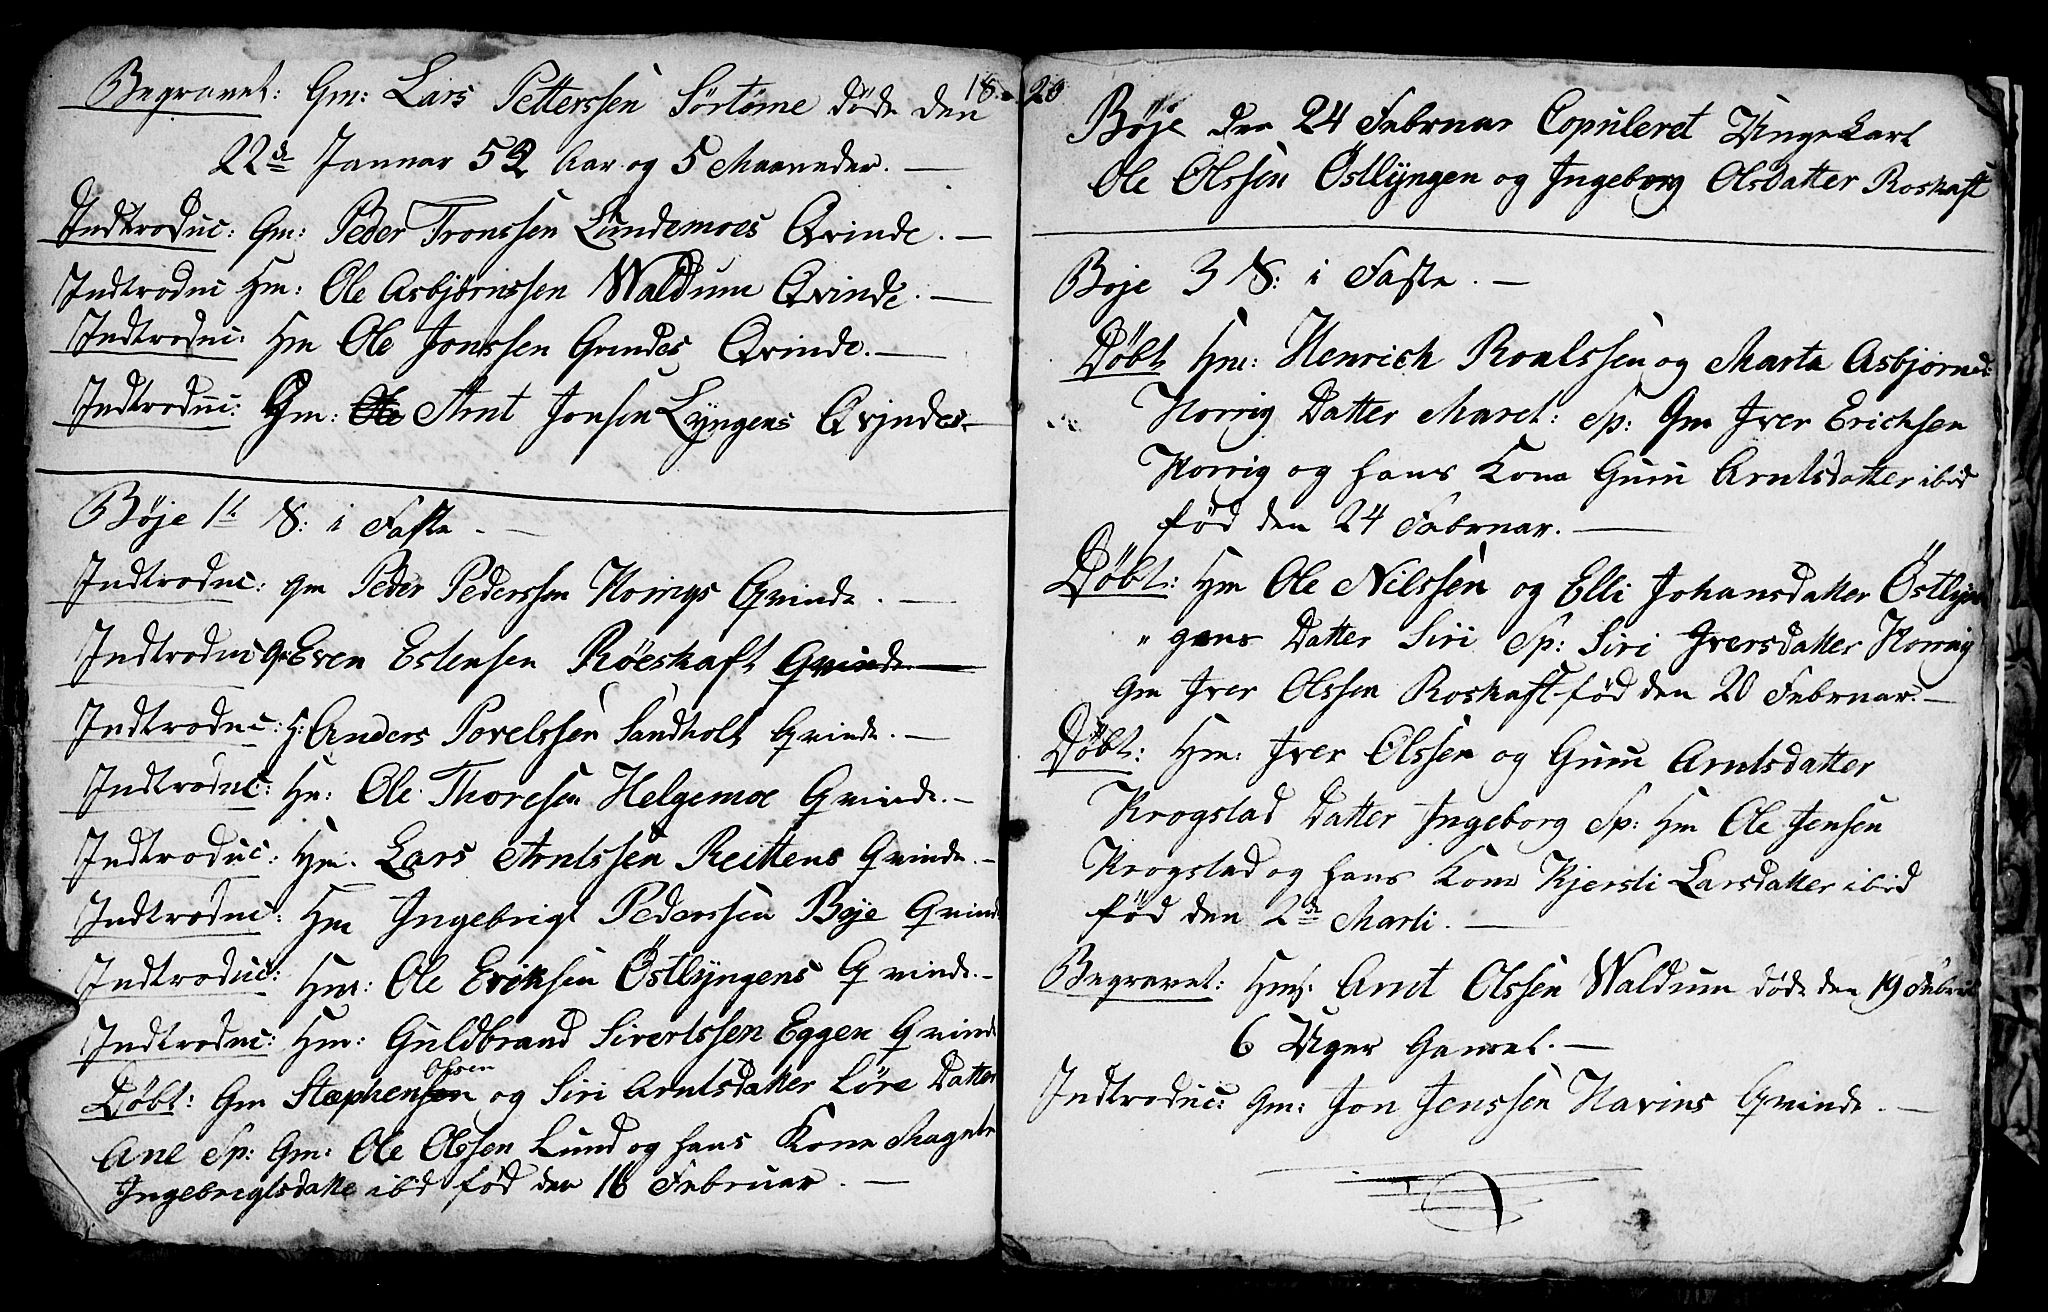 18 20
Begravet: Gm: Lars Petterssen Sørtøme døde den
22de Januar 52 Aar og 5 Maaneder. —
Indtroduc: Gm: Peder Tronssen Lundemoes Qvinde. —
Indtroduc Hm: Ole Asbjørnssen Waldum Qvinde. —
Indtroduc: Hm Ole Jonssen Grindes Qvinde. —
Indtroduc: Gm: Ole Arnt Jonsen Lyngens Qvinde. —
Bøje 1te S: i Faste —
Indtroduc: gm Peder Pederssen Horrigs Qvinde. —
Indtroduc Gm Even Estensen Røeskaft Qvinde —
Indtroduc: H: Anders Povelssen Sandholt Qvinde. —
Indtroduc: Hm: Ole Thoresen Helgemoe Qvinde. —
Indtroduc: Hm. Lars Arntssen Reittens Qvinde. —
Indtroduc: Hm Ingebrigt Pederssen Boje Qvinde
Indtroduc: Hm: Ole Eriksen Østlyngens Qvinde. —
Indtroduc: Hm: Guldbrand Sivertssen Eggen Qvinde
Olsen
Døbt: Gm Stæphensen og Siri Arntsdatter Løre Datter
Ane Sp: Gm: Ole Olssen Lund og hans Kone Magnte
Ingebrigtsdatte ibd fød den 16 Februar. —
Bøje den 24 Februar Copuleret Ungekarl
Ole Olssen Østlyngen og Ingeborg Olsdatter Roskaft
Boje 3 S: i Faste. —
Døbt Hm: Henrich Roalssen og Marta Asbjørnsd:
Horrig Datter Maret: Sp: Gm Iver Erichsen
Horrig og hans Kone Guru Arntsdatter ibid
fød den 24 Februar. —
Døbt: Hm Ole Nilssen og Elli Johansdatter Østlyn
„ gens Datter Siri Sp: Siri Iversdatter Horrig
Gm Iver Olssen Roskaft fød den 20 Februar. —
Døbt: Hm: Iver Olssen og Guru Arntsdatter
Krogstad Datter Ingeborg Sp: Hm Ole Jensen
Krogstad og hans Kone Kjersti Larsdatter ibid
fød den 2de Marti. —
Begravet: Hms: Arnt Olssen Waldum døde den 19 Februar
6 Uger Gamel. —
Indtroduc: Gm: Jon Jenssen Havins Qvinde. —